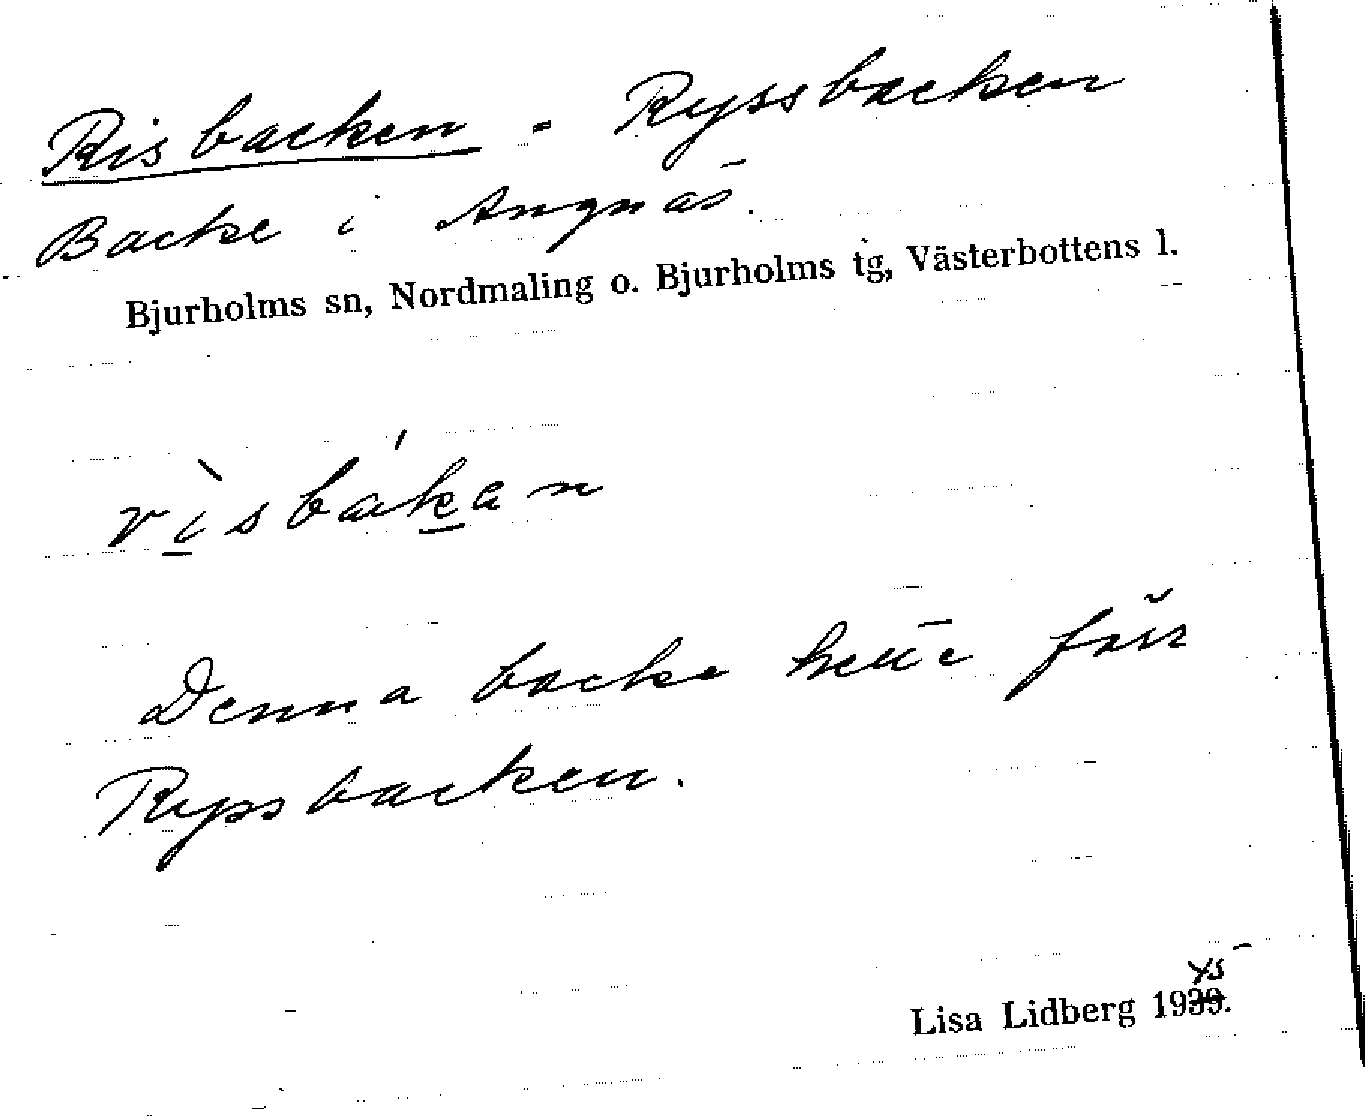 Risbacken - Ryssbacken
Backe i Angnäs.
Bjurholms sn, Nordmaling o. Bjurholms tg, Västerbottens l.
rìsbákan
Denna backe hette förr
Ryssbacken.
Lisa Lidberg 19